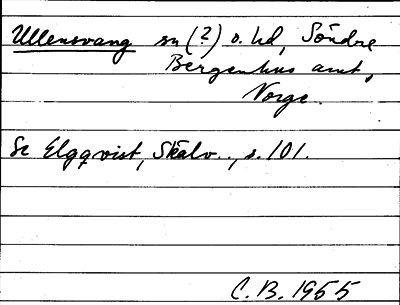 Ullensvang sn (?) o. hd, Söndre
Bergenhus amt,
Norge.
Se Elgqvist, Skälv.., s. 101.
C. B. 1955